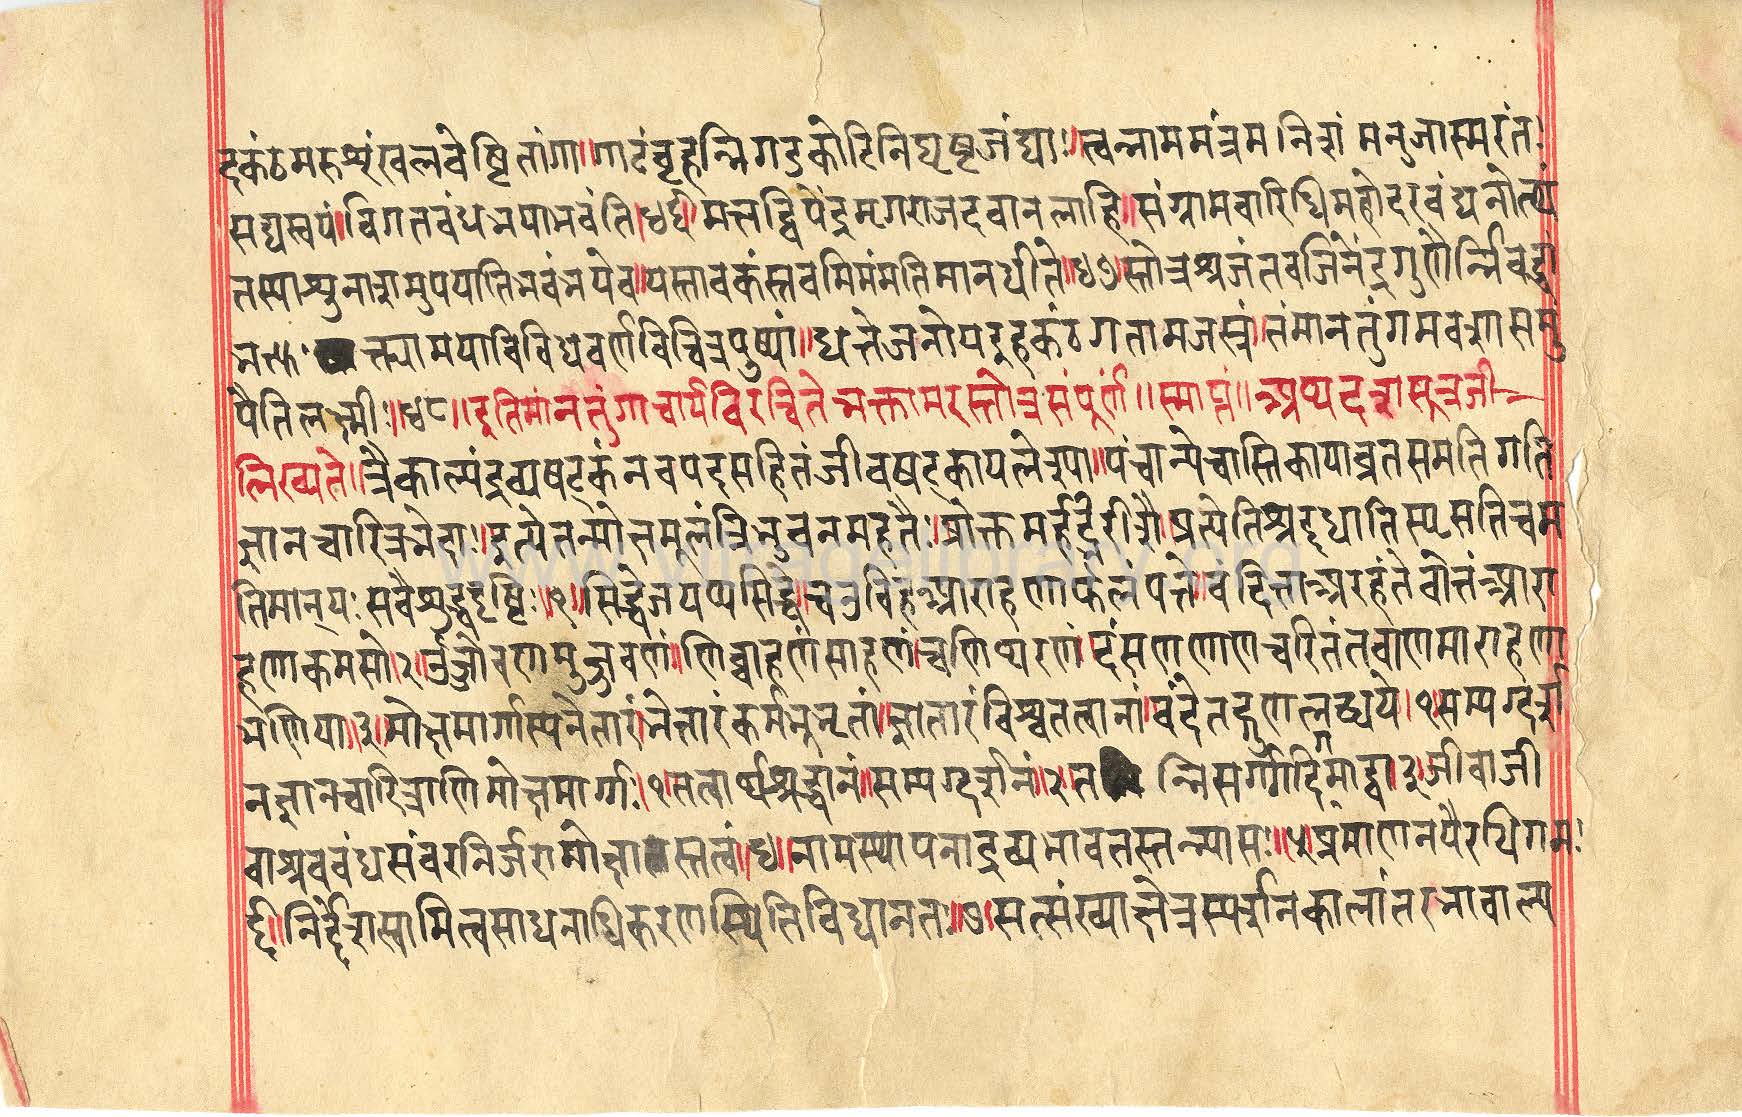 दकंठमरुशृंखलवेष्टितांगा॥गाढंवृहन्निगडकोटिनिघृष्टजंघा:॥त्वन्नाममंत्रमनिशं मनुजास्मरंत:
सद्यस्वयं॥विगतबंधभयाभवंति॥४६॥मत्तद्विपेंद्रमृगराजदवानलाहि॥संग्रामवारिधिमहोदरबंधनोत्थं
तस्याशुनाशमुपयातिभयंभयेव॥यस्तावकंस्तवमिमंमतिमानधीते॥४७॥स्तोत्रश्रजंतवजिनेंद्रगुणैर्न्निबद्धां
भक्त्या: मयाविविधवर्णविचित्रपुष्पां॥धत्तेजनोयइहकंठगतामजस्रं॥तंमानतुंगमवशासमु
पैतिलक्ष्मी:॥४८॥इतिमांनतुंगाचार्यविरचितेभक्तामरस्तोत्रसंपूर्णं॥स्माप्तं॥अथदशसूत्रजी
लिख्यते॥त्रैकाल्यंद्रव्यषट्कंनवपदसहितंजीवषट्कायलेश्या॥पंचान्येचास्तिकायाव्रतसमतिगति
ज्ञानचारित्रभेदा:॥इत्येतन्मोक्षमूलंत्रिभुवनमहतै:॥प्रोक्तमर्हद्देशीशै॥प्रत्येतिश्रद्दधातिस्पृसतिचम
तिमान्य: सवैशुद्धदृष्टि:॥१॥सिद्धेजयप्पसिद्धे॥चउविहआराहणाफलंपत्ते॥वंदित्ताअरहंतेवोत्तंआरा
हणाकमसो॥२॥उज्जोवणमुज्जवणं॥णिव्वाहणंसाहणं॥चणिच्छरणं॥दंसणणाणचरितंतवाणमाराहणा
भणिया॥३॥मोक्षमार्गास्यनेतारं॥भेत्तारंकर्मभूभृतां॥ज्ञातारंविश्वतत्वानां॥वंदेतद्गुणलब्धये॥१॥सम्यग्दर्श
नज्ञानचारित्राणिमोक्षमार्ग्ग:॥१॥सत्वार्थश्रद्धानं॥सम्यग्दर्शनं॥२॥त न्निसर्गादधिगमाद्वा॥३॥जीवाजी
वाश्रवबंधसंवरनिर्जरामोक्षा स्तत्वं॥४॥नामस्थापनाद्रव्यभावतस्तन्यास:॥५॥प्रमाणनयैरधिगम:
६॥निर्द्देशस्वामित्वसाधनाधिकरणस्थितिविधानत:॥७॥सत्संख्याक्षेत्रस्पर्शनकालांतरभावाल्प
www.vitragelibrary.org